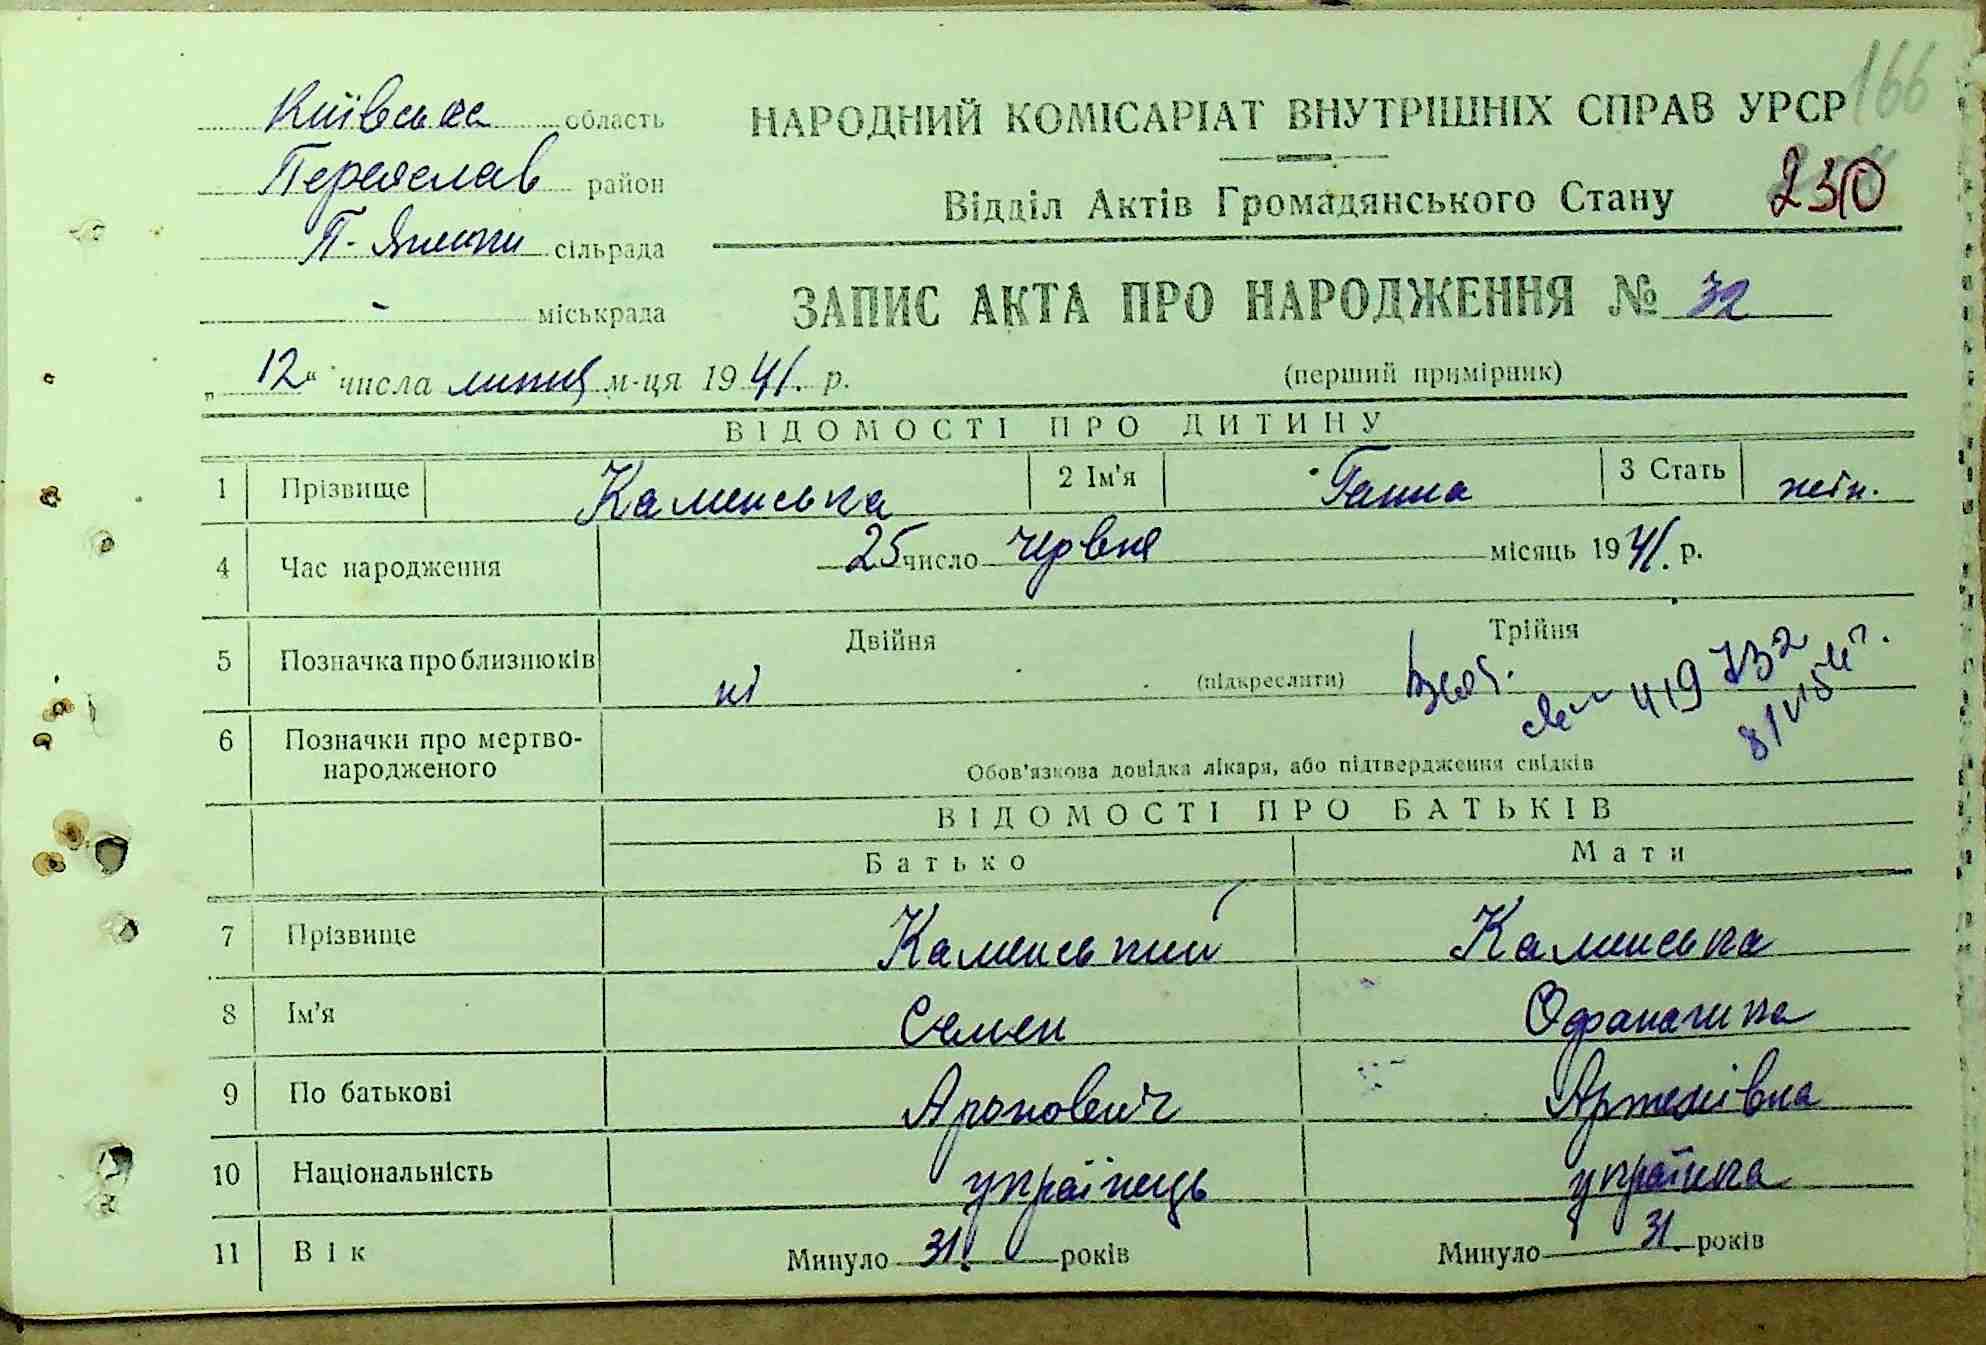 166
Київська область
НАРОДНИЙ КОМІСАРІАТ ВНУТРІШНІХ СПРАВ УРСР
Переяслав район
Відділ Актів Громадянського Стану 230
П- сільрада
- міськрада
ЗАПИС АКТА ПРО НАРОДЖЕННЯ № 32
„ 12 “ числа липня м-ця 1941. р.
(перший примірник)
ВІДОМОСТІ ПРО ДИТИНУ
1 Прізвище Каменська 2 Ім'я Ганна 3 Стать жін.
4 Час народження 25 число червня місяць 1941. р.
5 Позначка про близнюків Двійня Трійня
ні (підкреслити)
419732
6 Позначки про мертво-
народженого
Обов'язкова довідка лікаря, або підтвердження свідків
ВІДОМОСТІ ПРО БАТЬКІВ
Батько Мати
7 Прізвище Каменський Каменська
8 Ім'я Семен
9 По батькові Аронович Артемівна
10 Національність українець українка
11 Вік Минуло 31. років Минуло 31. років